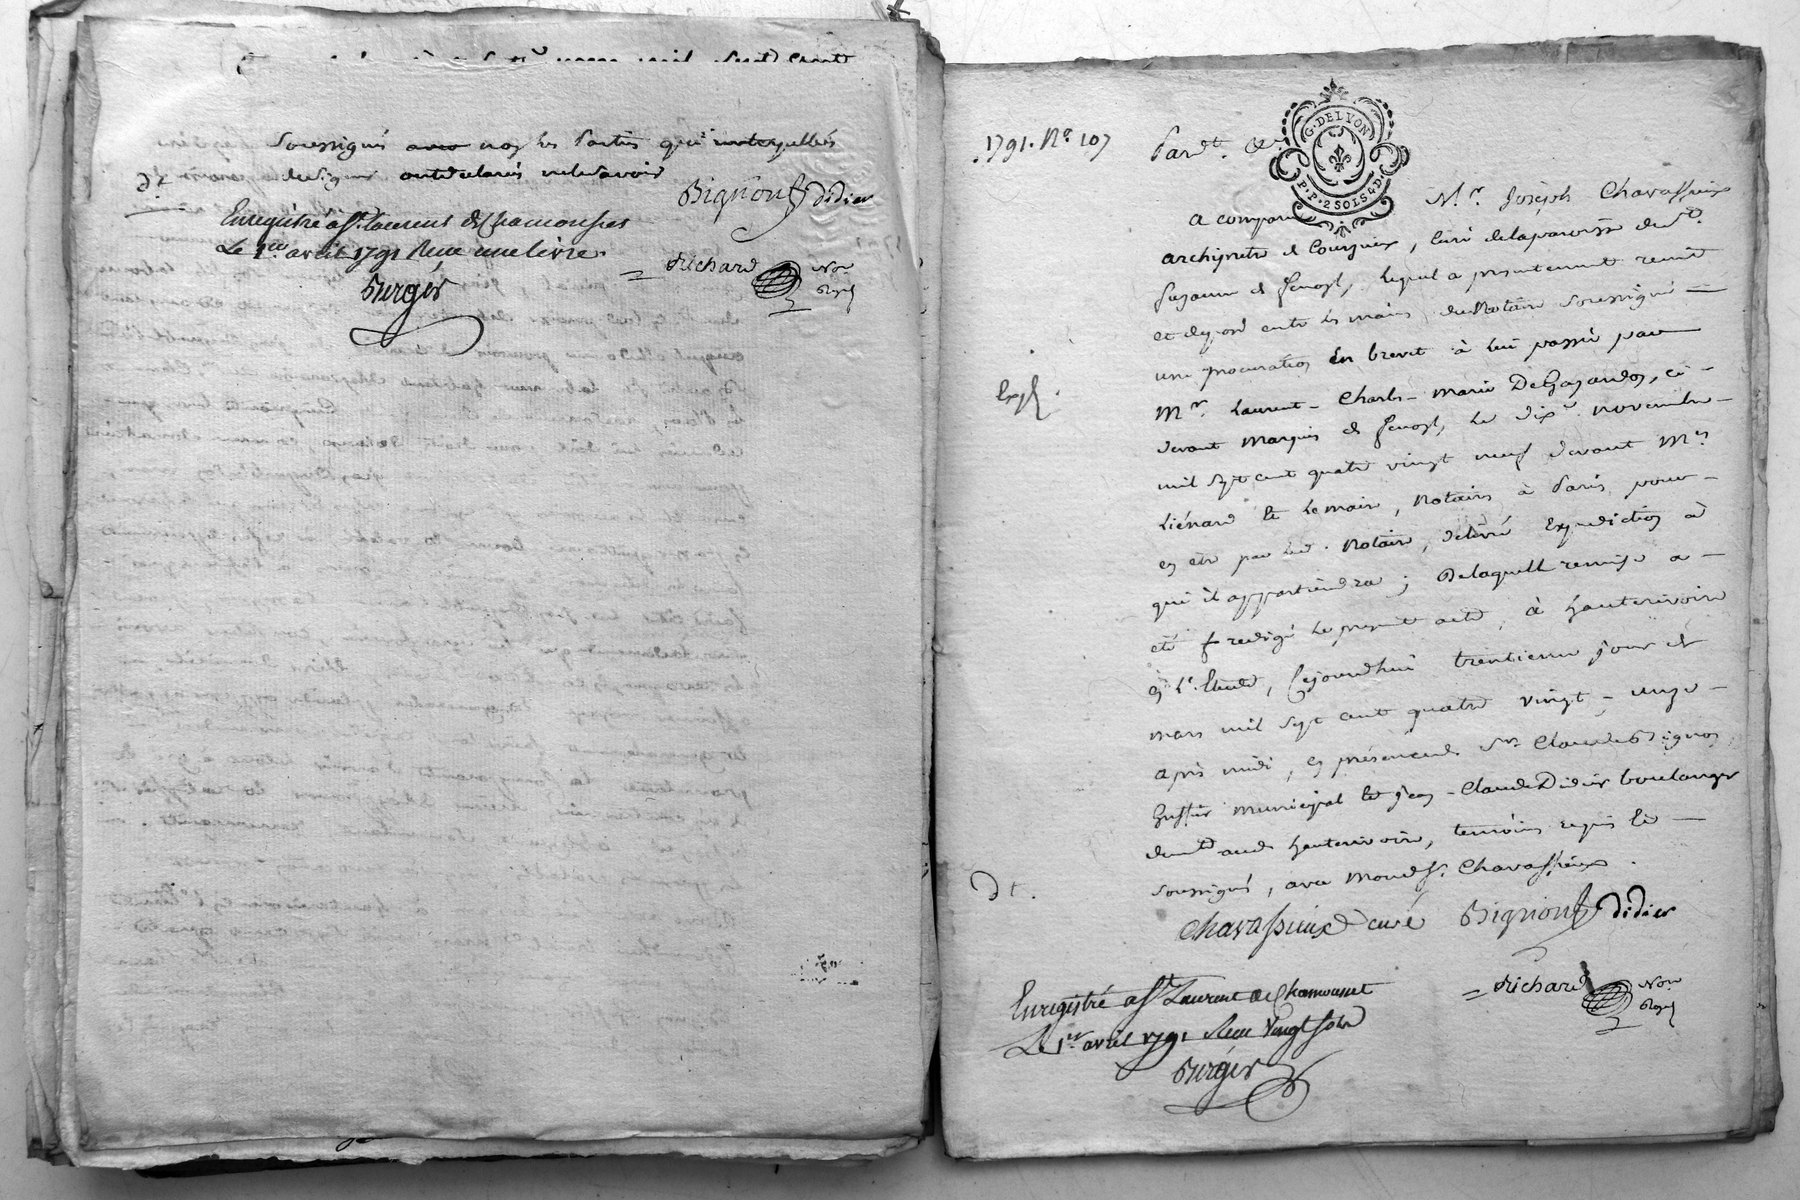 soussignés avec nos les parties qui interpellées
de signer ont déclarés ne le savoir
Dt.
Bignon Didier
Enregistré a St Laurent de Chamousset
Le 1er avril 1791 Reçu une livre
Berger
Richard Nore
Royal
1791. No 107
Pardt.
G. DE LYON
P.P. 2 SOLS 4 D.
a comparu Mr. Joseph Chavassieux
archiprêtre de Courzieux, curé de la paroisse de Ste.
fenoyl, lequel a présentement remis
et déposé entre les mains du Notaire soussigné
une procuration en brevet à lui passée par
Expé.
Mr. Laurent-Charles-Marie DeGayardon, ci-
devant Marquis de fenoyl, le dix novembre
mil sept cent quatre vingt neuf devant Mes
Liénard et Lemoine, Notaires à Paris, pour
en être par led. Notaire, délivré expédition à
qui il appartiendra; De laquelle remise a
été rédigé le présent acte, à hauterivoire
en l'Etude, Cejourd'hui trentieme jour de
mars mil sept cent quatre vingt-onze
après midi, en présence de Sr. Claude Bignon
greffier municipal et jean-Claude Didier boulanger
demt. aud. hauterivoire, témoins requis et
soussignés, avec mond. Sr. Chavassieux.
Dt.
Chavassieux curé Bignon Didier
Enregistré a St Laurent de Chamousset
Le 1er avril 1791 Reçu Vingt sols
Berger
Richard Nore
Royal